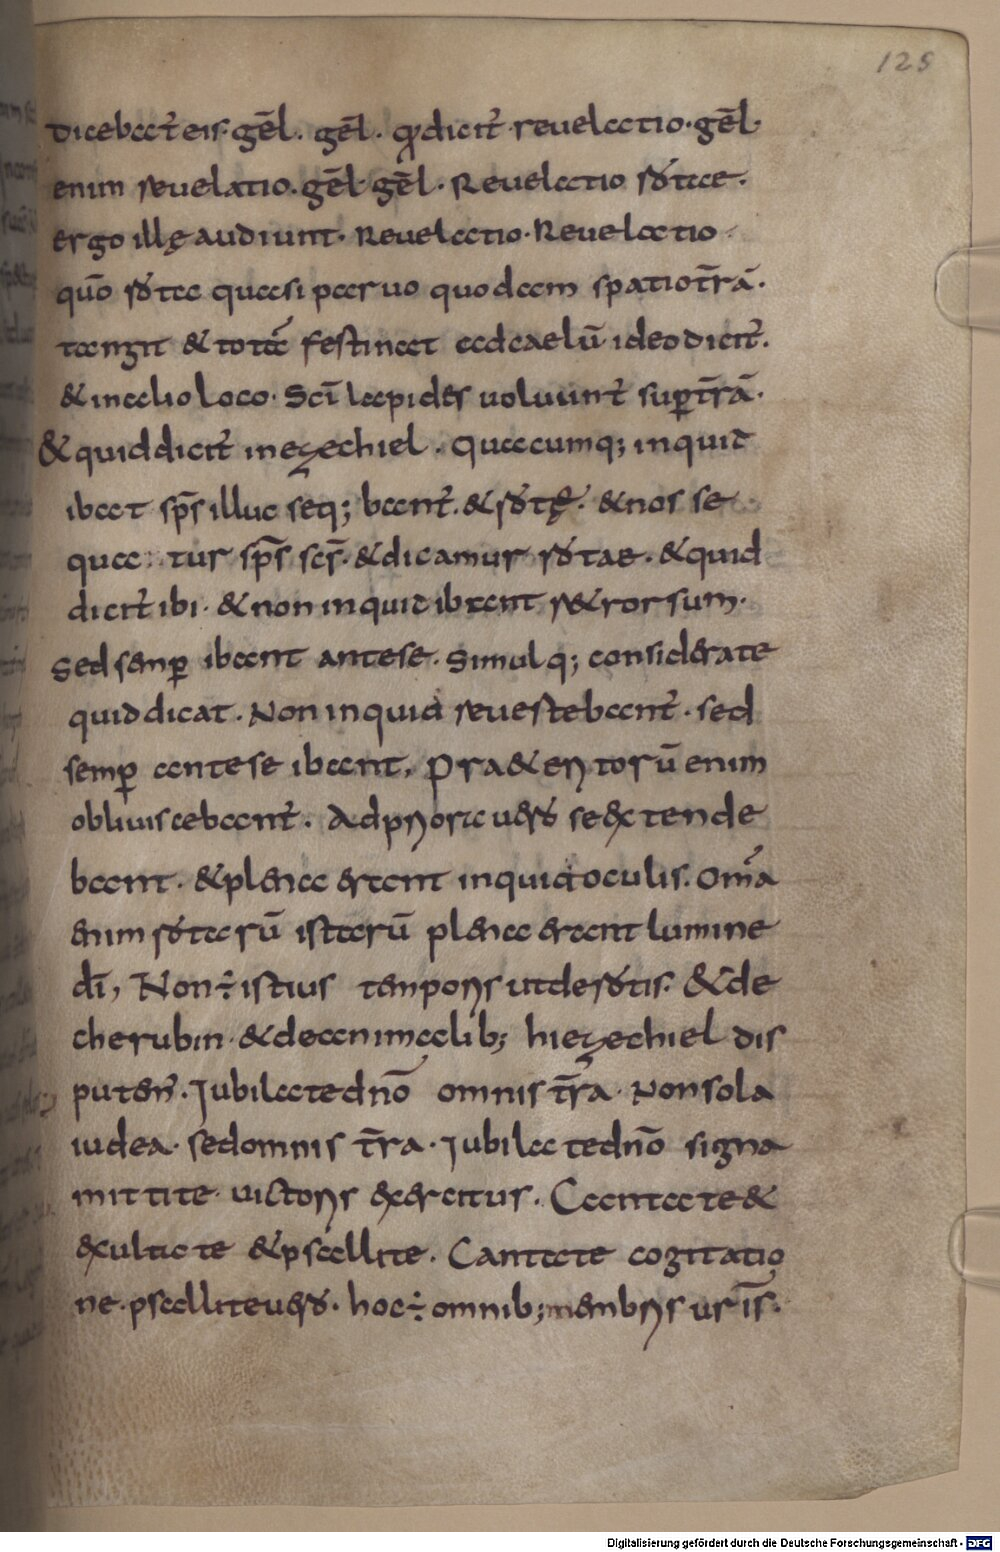 125
dicebat̄ eis· gēl· gēl· qđ dicit̄ reuelatio· gēl
enim reuelatio· gēl gēl· Reuelatio rotae·
ergo illę audiunt· Reuelatio· Reuelatio
quō rotae quasi paruo quodam spatio tr̄ā·
tangit & totā festinat ad caelū ideo dicit̄·
& in alio loco· Sc̄i lapides uoluunt̄ sup tr̄ā·
& quid dicit̄ in ezechiel· Quacumq; inquid
ibat sp̄s illuc seq;bant̄· & rotę· & nos se
qua tur sp̄s sc̄s· & dicamur rotae· & quid
dicit̄ ibi· & non inquid ibant retrorsum·
Sed semp ibant ante se· Simulq; considerate
quid dicat· Non inquid reuertebant̄· sed
semp ante se ibant, Praeteritorū enim
obliuiscebant̄· Ad priora uero se extende
bant· & plena erant inquid oculis· Om̄a
enim rotarū istarū plena erant lumine
dī, Non ÷ istius temporis ut de rotis· & de
cherubin· & de animalib; hiezechiel dis
putem̄· Iubilate dnō omnis tr̄ra· Non sola
iudea· sed omnis tr̄ra· Iubilate dnō signa
mittite uictoris exercitus· Cantate &
exultate & psallite· Cantate cogitatio
ne· psallite uero· hoc ÷ omnib; membris uris̄·
Digitalisierung gefördert durch die Deutsche Forschungsgemeinschaft - DFG